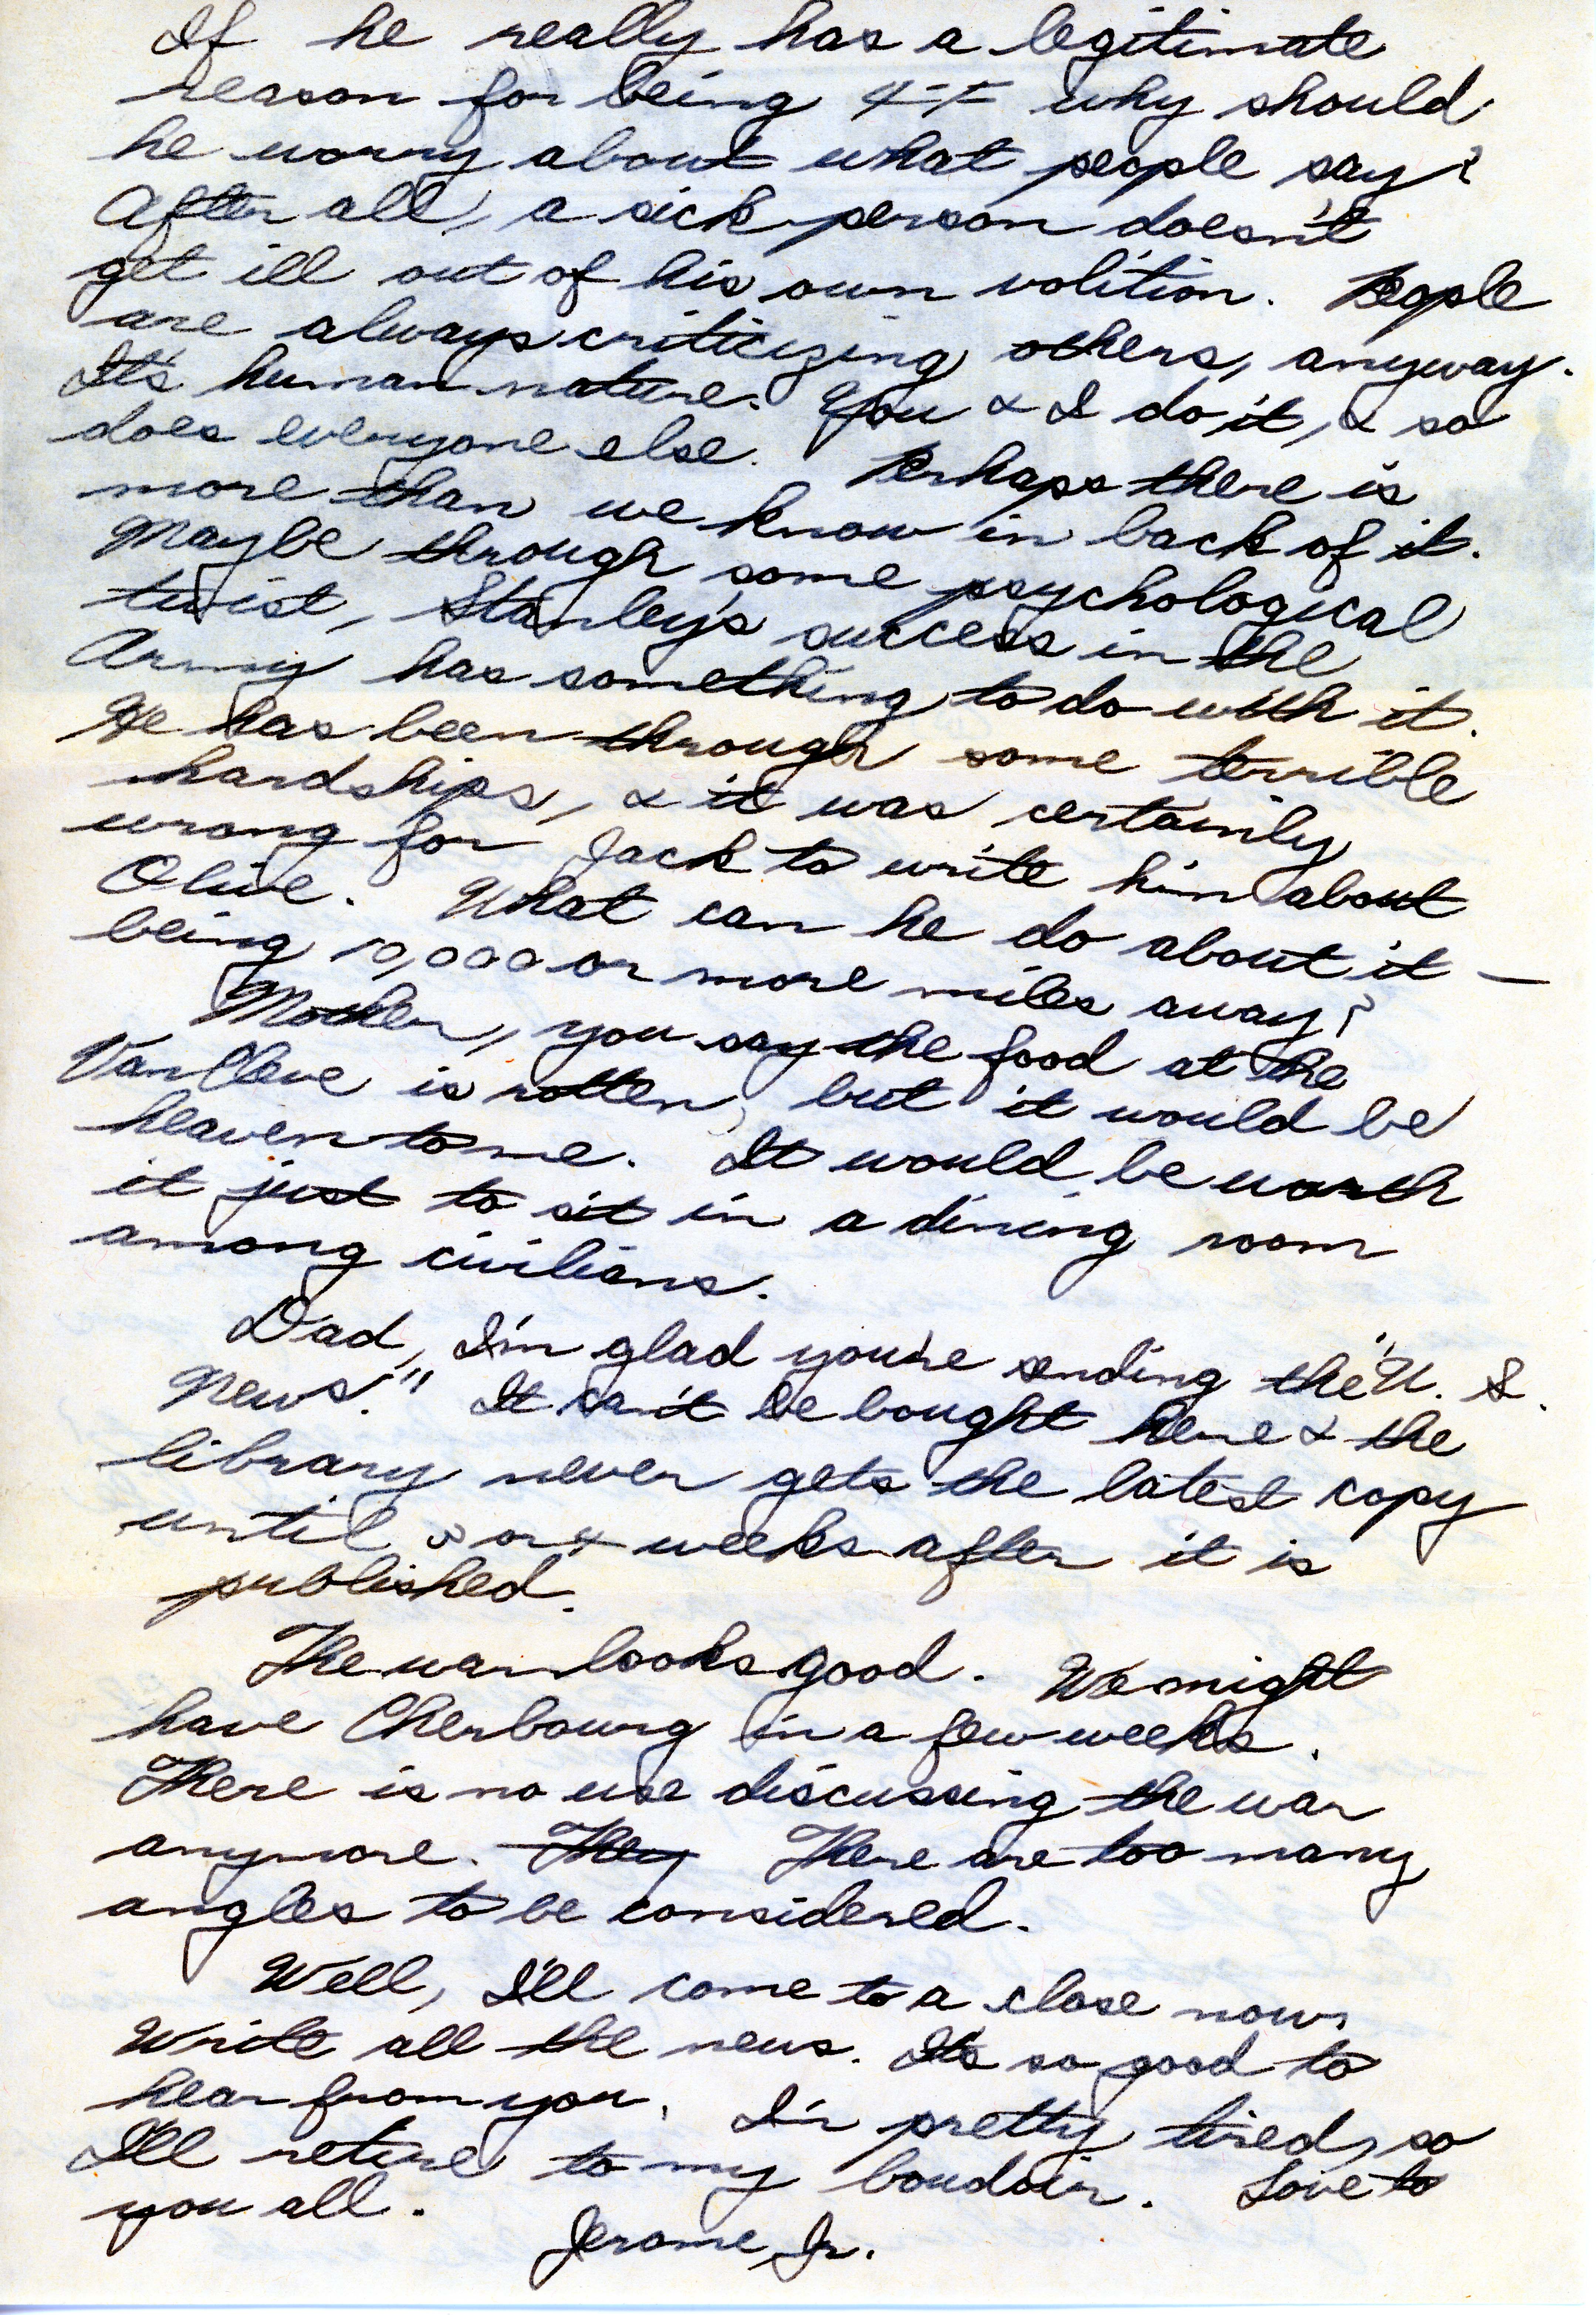 If he really has a legitimate
reason for being 4-F why should
he worry about what people say?
After all, a sick person doesn't
get ill out of his own volition. People
are always criticizing others, anyway.
It's human nature. You & I do it, & so
does everyone else. Perhaps there is
more than we know in back of it.
Maybe through some psychological
twist, Stanley's success in the
Army has something to do with it.
He has been through some terrible
hardships, & it was certainly
wrong for Jack to write him about
Olive. What can he do about it —
being 10,000 or more miles away?
Mother, you say the food at the
Van Cleve is rotten, but it would be
heaven to me. It would be worth
it just to sit in a dining room
among civilians.
Dad, I'm glad you're sending the "U. S.
News." It can't be bought here & the
library never gets the latest copy
until 3 or 4 weeks after it is
published.
The war looks good. We might
have Cherbourg in a few weeks.
There is no use discussing the war
anymore. They There are too many
angles to be considered.
Well, I'll come to a close now.
Write all the news. It's so good to
hear from you. I'm pretty tired, so
I'll retire to my boudoir. Love to
you all.
Jerome, Jr.